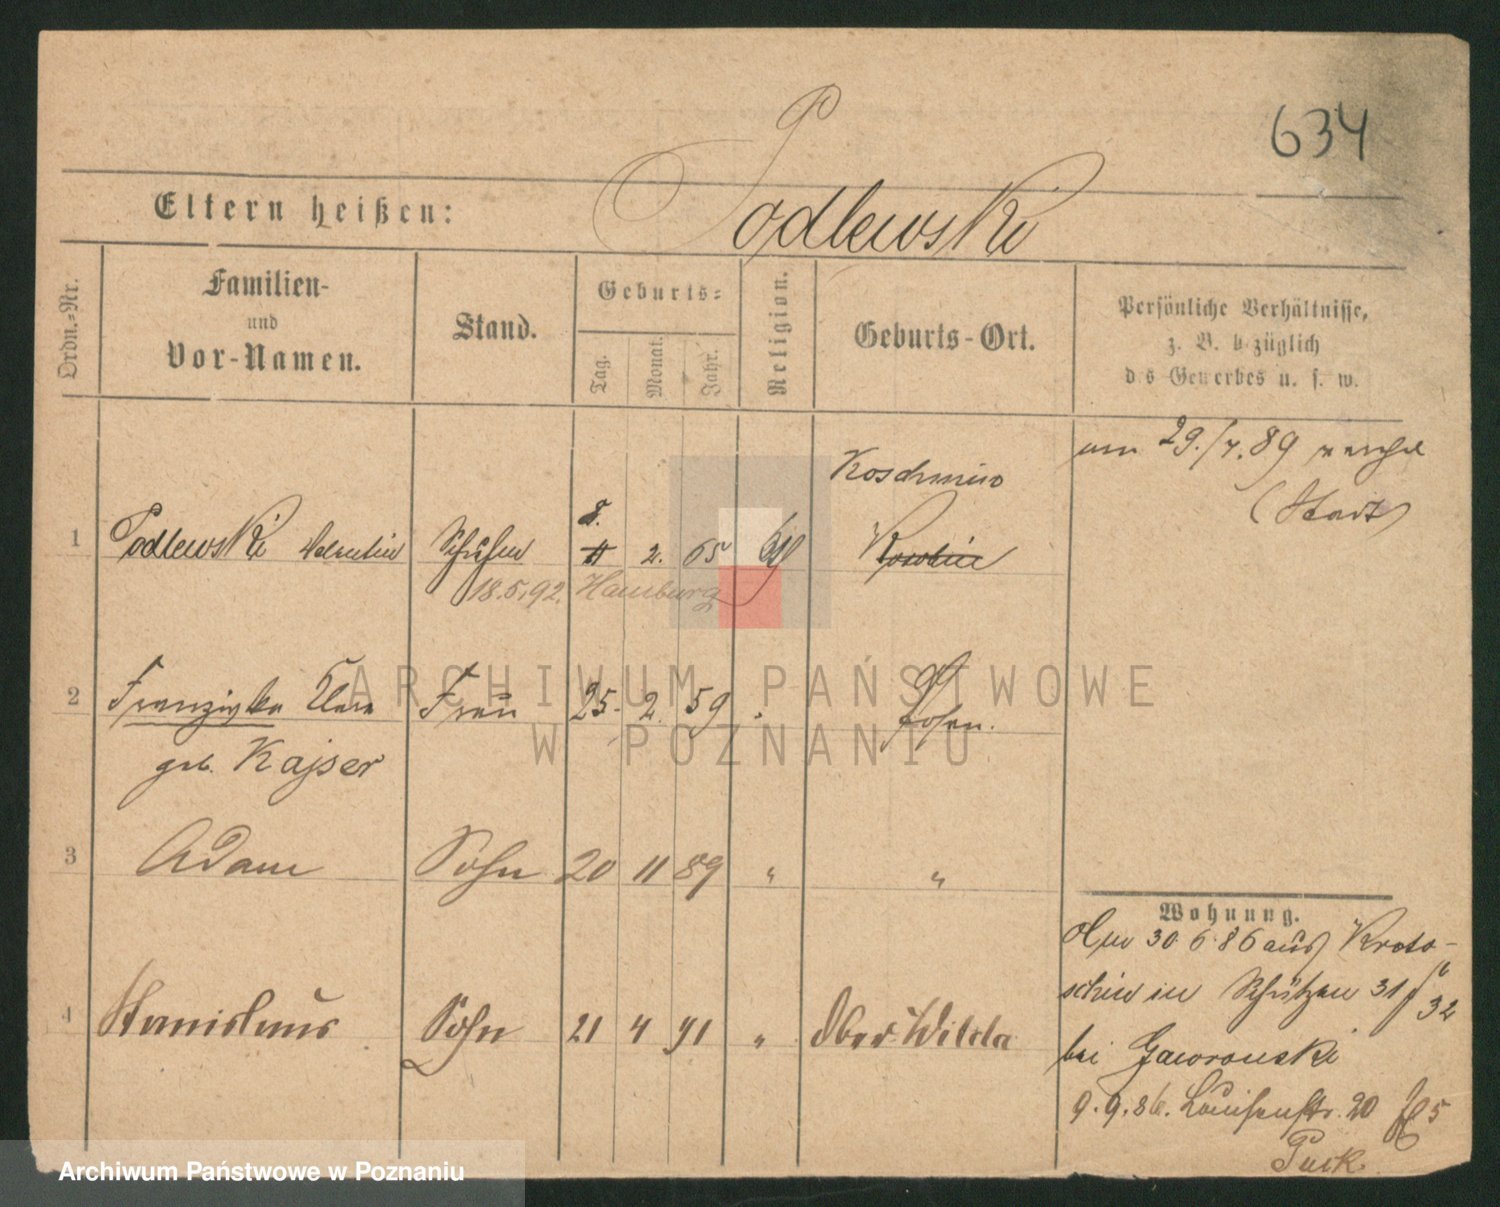 634
Eltern heißen: Podlewski
Ordn.-Nr.
Familien-
und
Vor-Namen.
Stand.
Geburts-
Tag.
Monat.
Jahr.
Religion.
Geburts-Ort.
Persönliche Verhältnisse,
z. B. bezüglich
des Gewerbes u. s. w.
29./7. 89
Koschmin
1 Podlewski Valentin 2. 65
18.5.92. Hamburg
2 Franziska Clara Frau 25. 2. 59 " Posen.
geb. Kajser
3 Adam Sohn 20 11 89 " "
4 Stanislaus Sohn 21 4 91 " Ober Wilda
Wohnung.
30 6 86 aus Kroto-
schin in Schützen 31/32
bei Jaworouski
9.9.86. Louisenstr. 20
ARCHIWUM PAŃSTWOWE
W POZNANIU
Archiwum Państwowe w Poznaniu